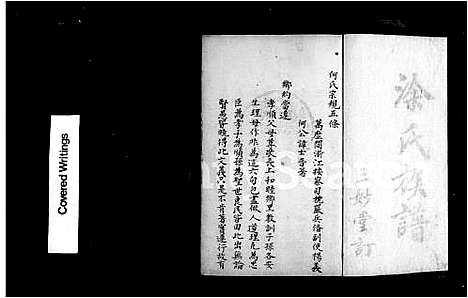 涂氏族譜
三妙堂訂
何氏宗規五條
何公諱士晋著
鄉約當遵
孝順父母尊敬長上和睦鄉里教訓子孫各安
生理毋作非為這六句包盡做人道理凡為忠
臣為孝子為順孫為聖世良民皆由此出無論
賢愚皆曉得此文義只是不肯著實遵行故有
Covered Writings